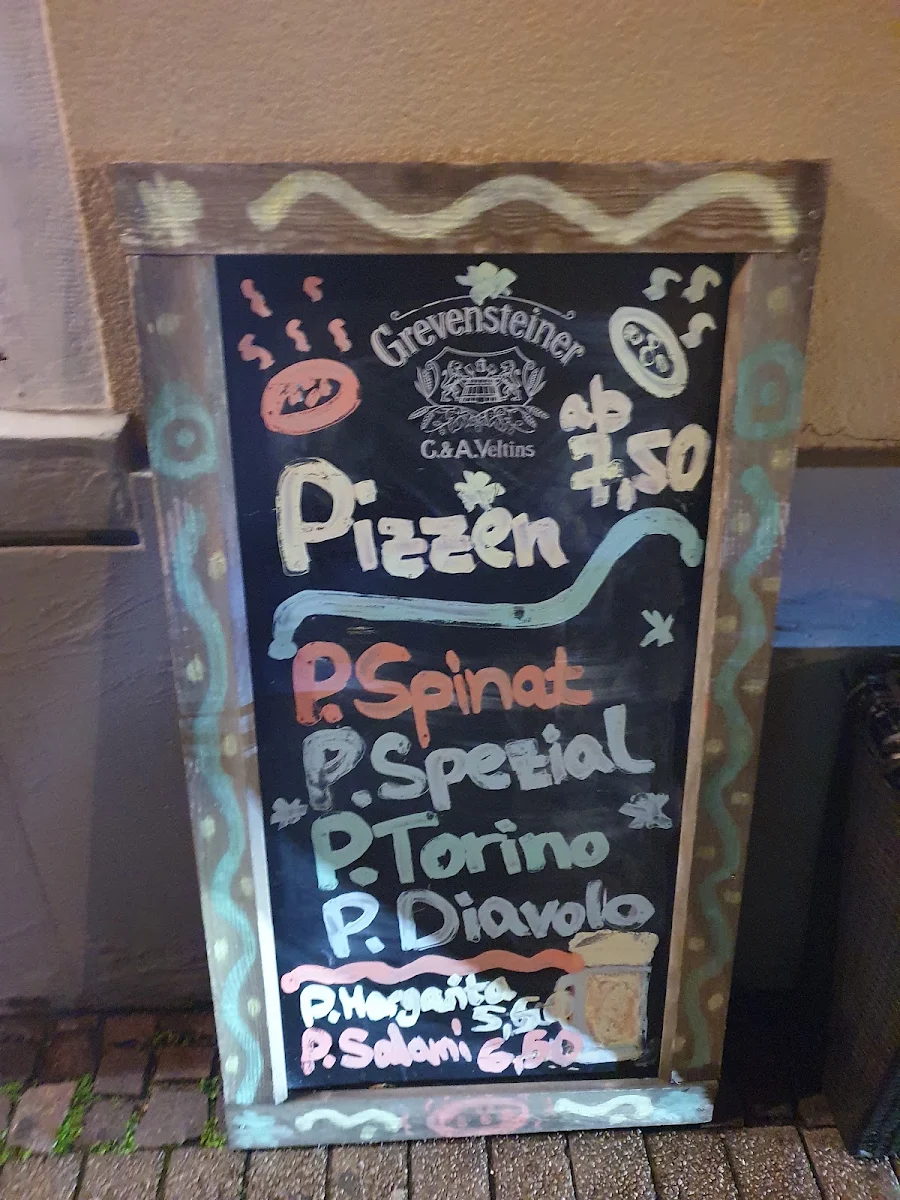 Grevensteiner
C.&A.Veltins
ab
7,50
Pizzen
P. Spinat
P. Spezial
P. Torino
P. Diavolo
P. Margarita
5,50
P. Salami 6,50